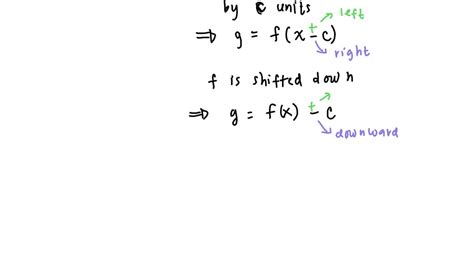 by c units
left
⇒ g = f(x ± c)
right
f is shifted down
⇒ g = f(x) ± c
downward